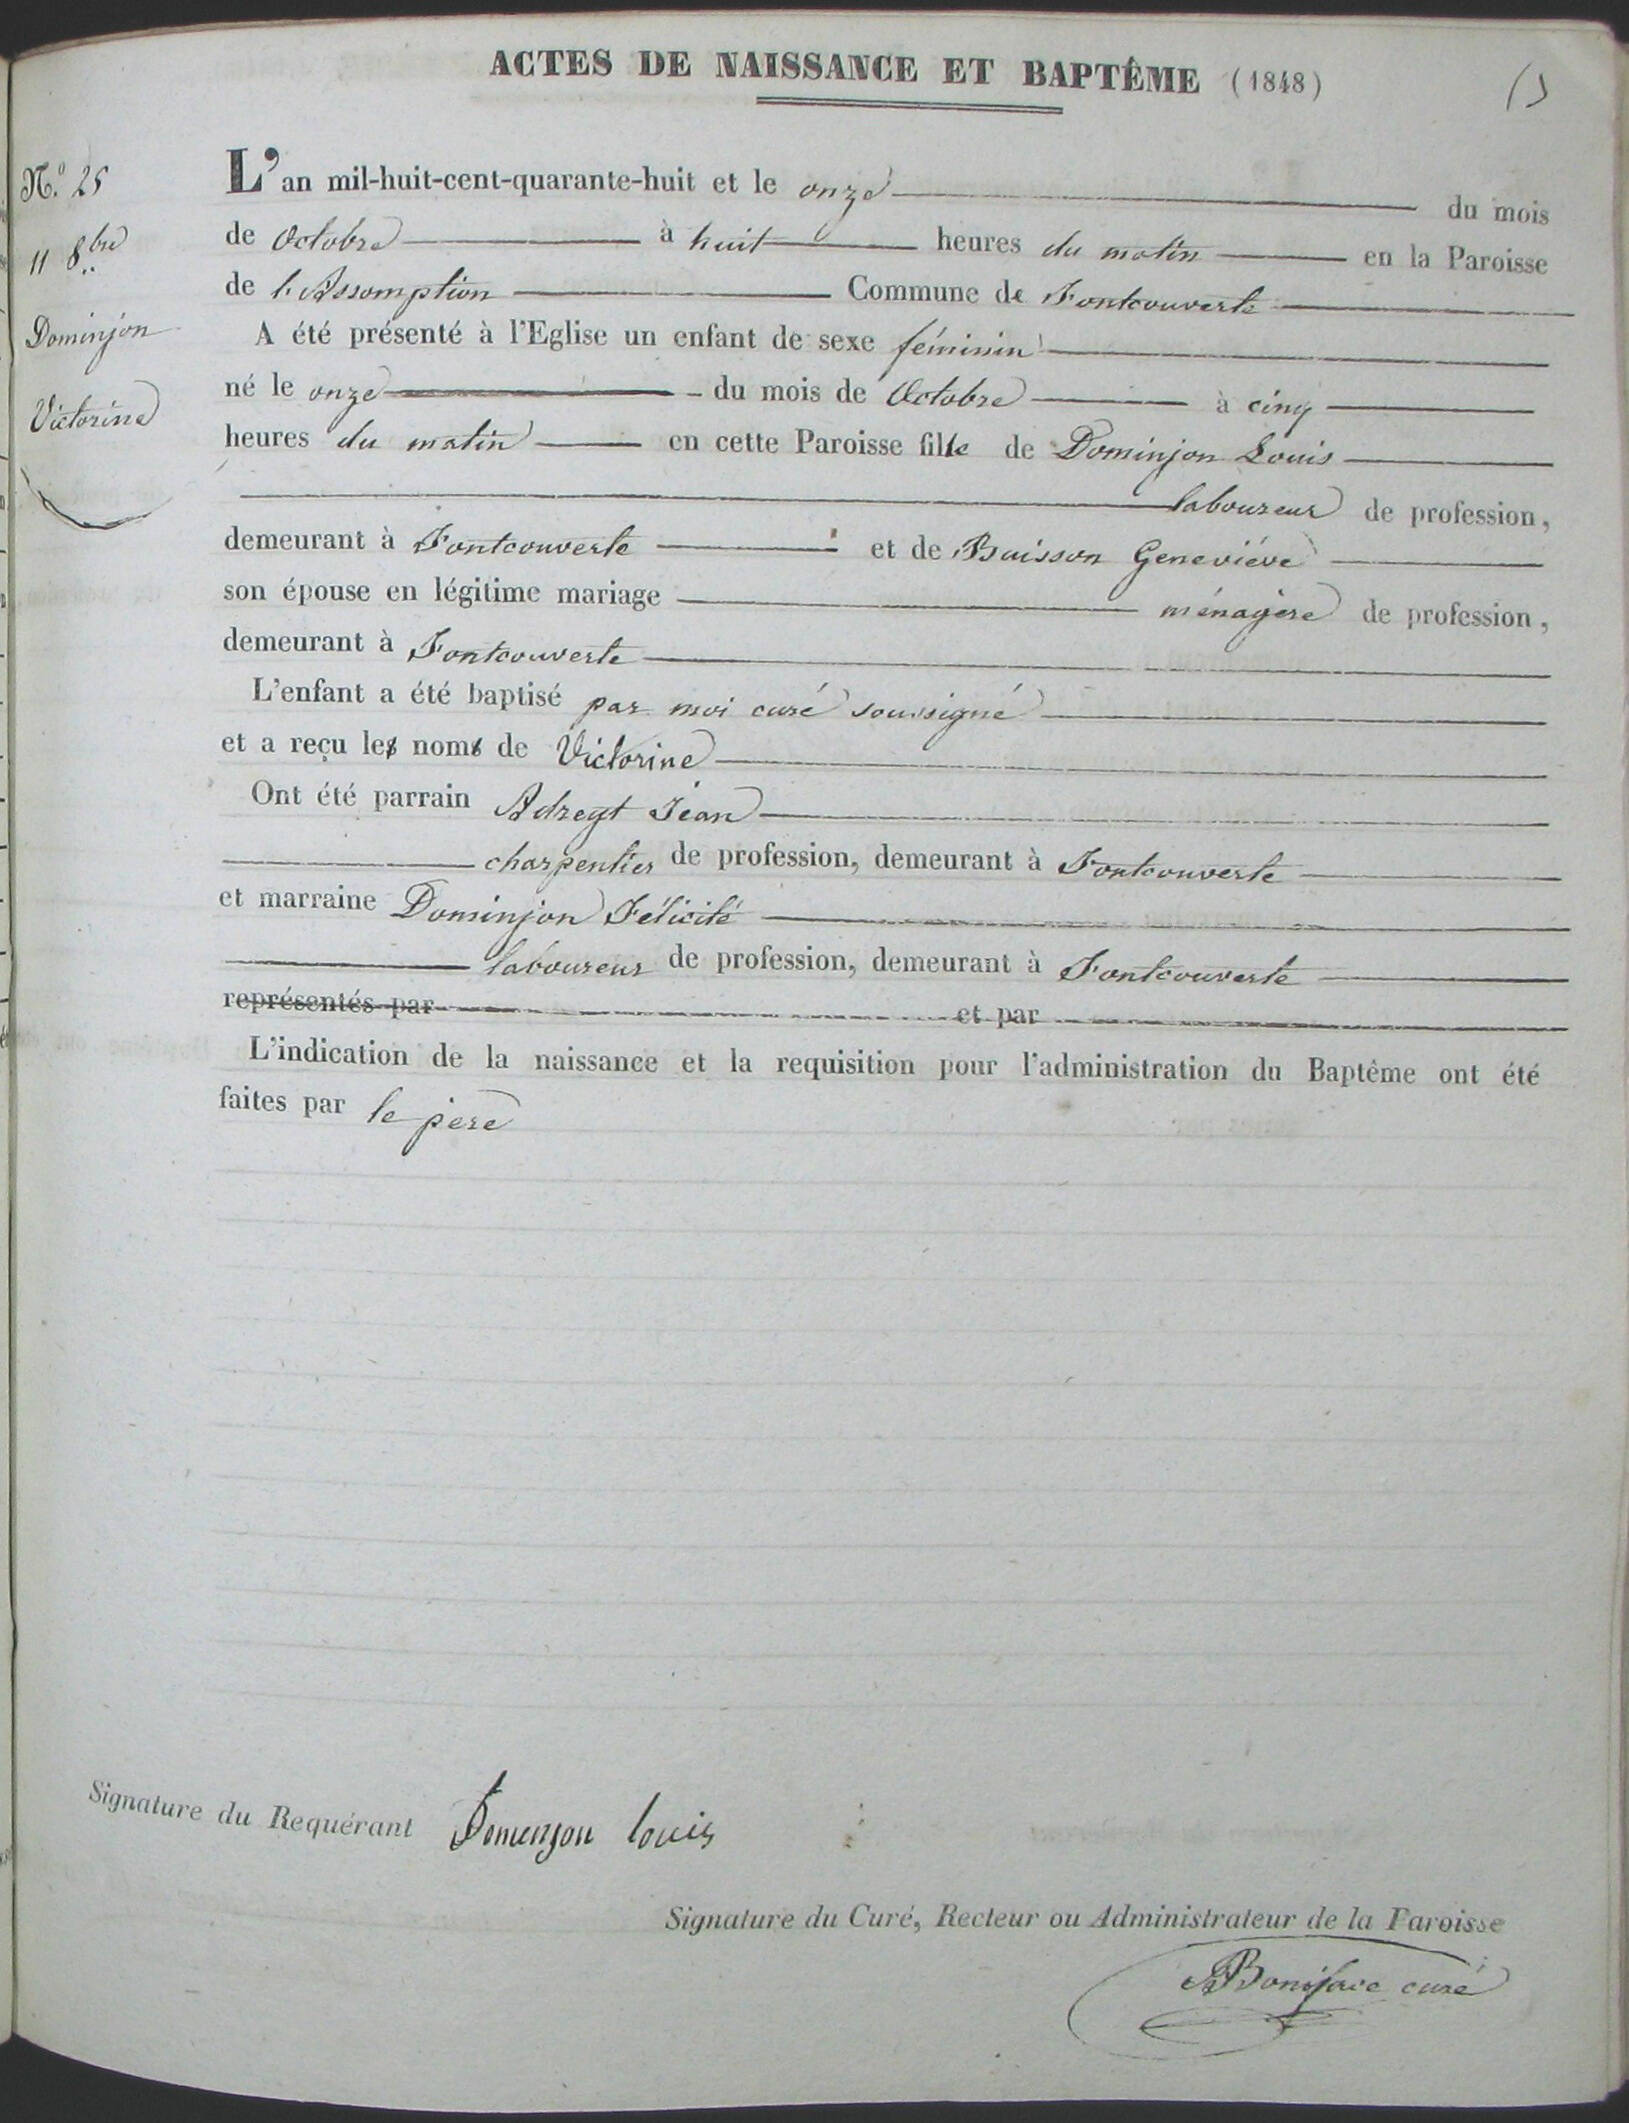 ACTES DE NAISSANCE ET BAPTÊME (1848)
N.º 25
11 8bre
Dominjon
Victorine
L'an mil-huit-cent-quarante-huit et le onze du mois
de Octobre à huit heures du matin en la Paroisse
de l'Assomption Commune de Fontcouverte
A été présenté à l'Eglise un enfant de sexe féminin
né le onze du mois de Octobre à cinq
heures du matin en cette Paroisse fille de Dominjon Louis
laboureur de profession,
demeurant à Fontcouverte et de Buisson Geneviève
son épouse en légitime mariage ménagère de profession,
demeurant à Fontcouverte
L'enfant a été baptisé par moi curé soussigné
et a reçu les noms de Victorine
Ont été parrain Adregt Jean
charpentier de profession, demeurant à Fontcouverte
et marraine Dominjon Félicité
laboureur de profession, demeurant à Fontcouverte
représentés par et par
L'indication de la naissance et la requisition pour l'administration du Baptême ont été
faites par le père
Signature du Requérant Domenjon louis
Signature du Curé, Recteur ou Administrateur de la Paroisse
Boniface curé